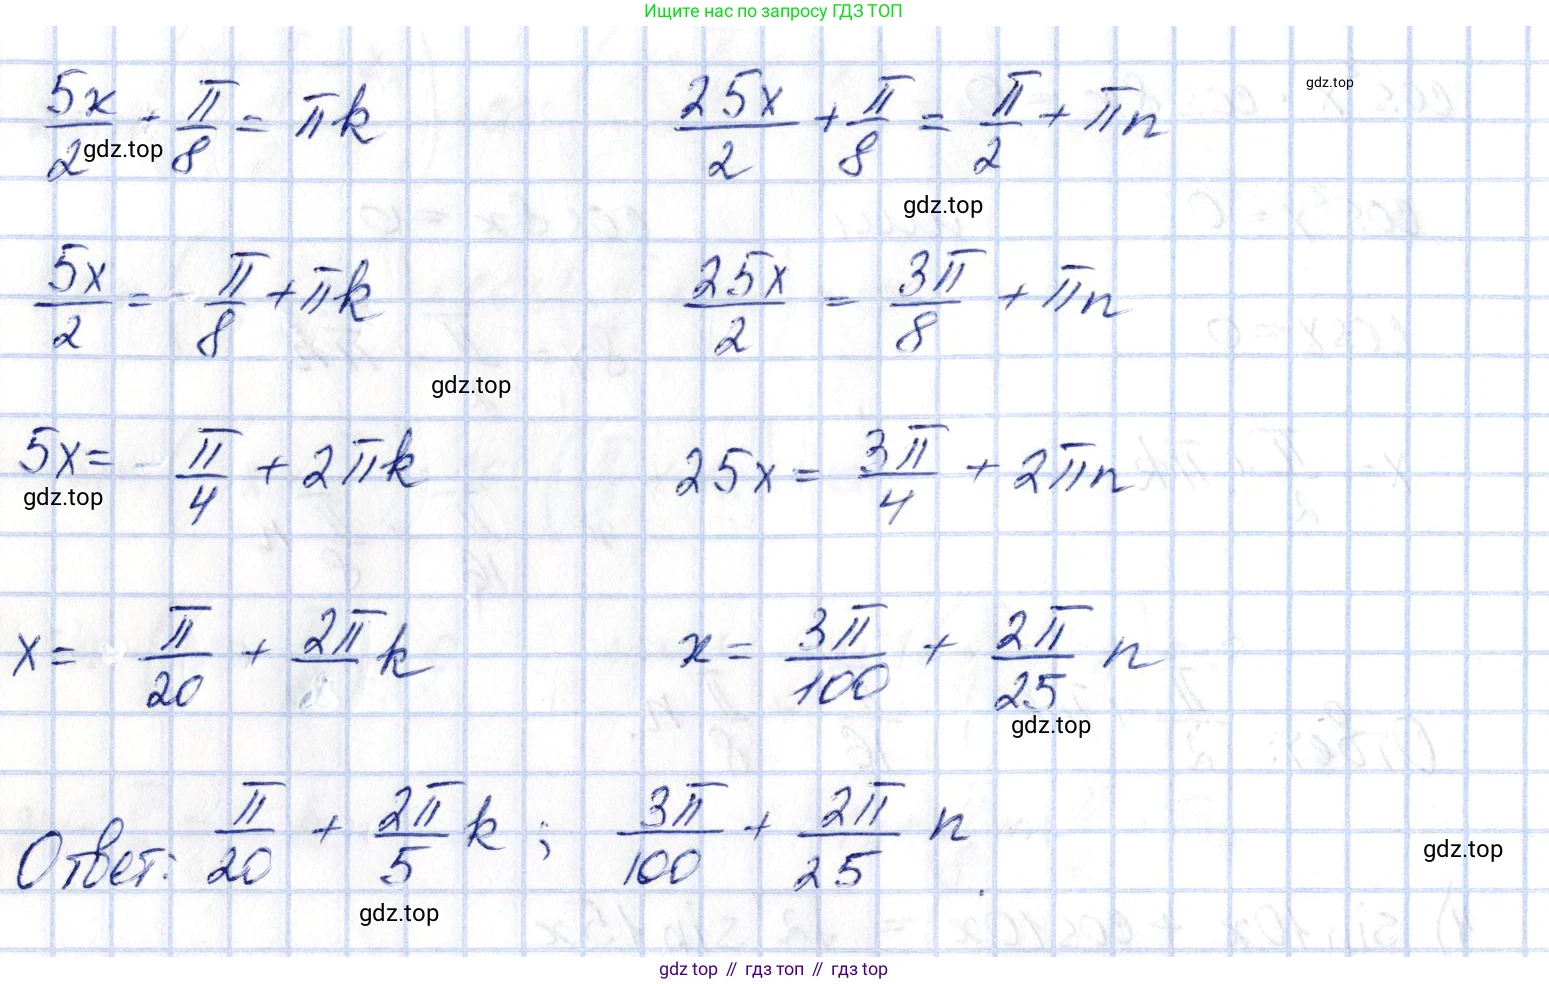 Ищите нас по запросу ГДЗ ТОП
gdz.top
5x/2 - π/8 = πk 25x/2 + π/8 = π/2 + πn
gdz.top
gdz.top
5x/2 = π/8 + πk 25x/2 = 3π/8 + πn
gdz.top
5x = π/4 + 2πk 25x = 3π/4 + 2πn
gdz.top
x = π/20 + 2π/ k x = 3π/100 + 2π/25 n
gdz.top
Ответ: π/20 + 2π/5 k ; 3π/100 + 2π/25 n .
gdz.top
gdz.top
gdz top // гдз топ // gdz top